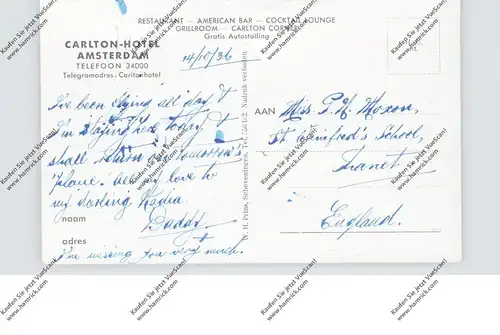 RESTAURANT — AMERICAN BAR — COCKTAIL LOUNGE
GRILLROOM — CARLTON CORNER
Gratis Autostalling
CARLTON-HOTEL
AMSTERDAM
TELEFOON 34000
Telegramadres: Carltonhotel
14/10/36
I've been flying all day &
I'm staying here today &
shall return in tomorrow's
'plane. best love to
my darling
Daddy.
I'm missing you very much.
naam
adres
W. H. Prins, Scheveningen, Tel. 556 82. Nadruk verboden
AAN
Miss P. M. Moxon,
St Winifred's School,
Thanet
England.
Kaufen Sie jetzt VueScan!
www.hamrick.com